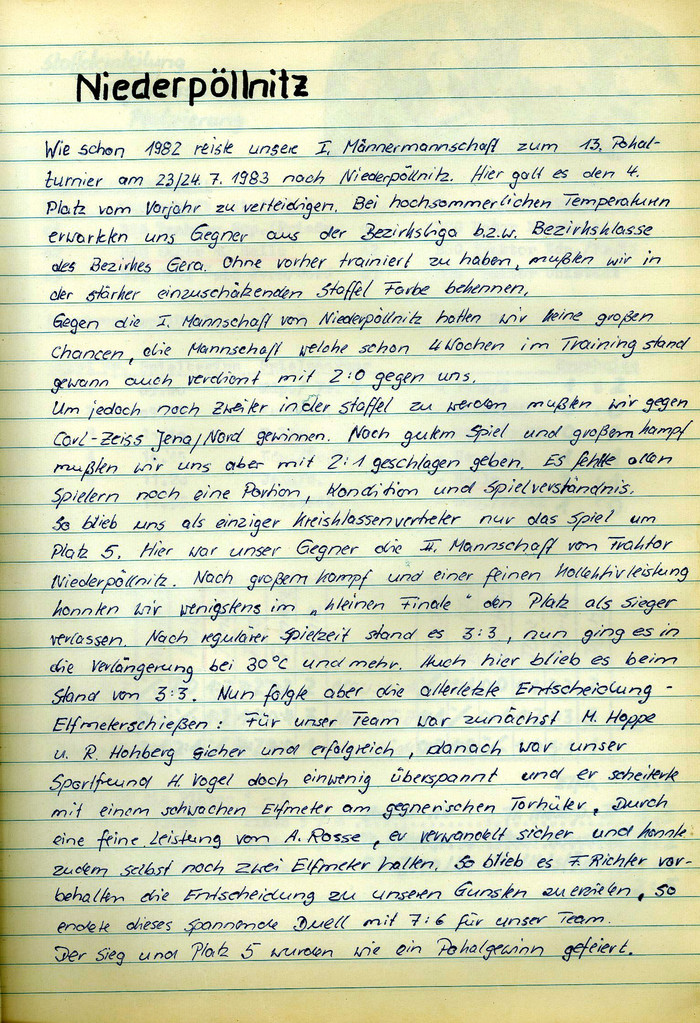 Niederpöllnitz
Wie schon 1982 reiste unsere I. Männermannschaft zum 13. Pokal-
turnier am 23/24. 7. 1983 nach Niederpöllnitz. Hier galt es den 4.
Platz vom Vorjahr zu verteidigen. Bei hochsommerlichen Temperaturen
erwarteten uns Gegner aus der Bezirksliga b.z.w. Bezirksklasse
des Bezirkes Gera. Ohne vorher trainiert zu haben, mußten wir in
der stärker einzuschätzenden Staffel Farbe bekennen.
Gegen die I. Mannschaft von Niederpöllnitz hatten wir keine großen
Chancen, die Mannschaft welche schon 4 Wochen im Training stand
gewann auch verdient mit 2:0 gegen uns.
Um jedoch noch Zweiter in der Staffel zu werden mußten wir gegen
Carl-Zeiss Jena/Nord gewinnen. Nach gutem Spiel und großem Kampf
mußten wir uns aber mit 2:1 geschlagen geben. Es fehlte allen
Spielern noch eine Portion, Kondition und Spielverständnis.
So blieb uns als einziger Kreisklassenvertreter nur das Spiel um
Platz 5. Hier war unser Gegner die II. Mannschaft von Traktor
Niederpöllnitz. Nach großem Kampf und einer feinen Kollektivleistung
konnten wir wenigstens im „kleinen Finale" den Platz als Sieger
verlassen. Nach regulärer Spielzeit stand es 3:3, nun ging es in
die Verlängerung bei 30°C und mehr. Auch hier blieb es beim
Stand von 3:3. Nun folgte aber die allerletzte Entscheidung -
Elfmeterschießen: Für unser Team war zunächst M. Hoppe
u. R. Hohberg sicher und erfolgreich, danach war unser
Sportfreund H. Vogel doch einwenig überspannt und er scheiterte
mit einem schwachen Elfmeter am gegnerischen Torhüter. Durch
eine feine Leistung von A. Rosse, er verwandelt sicher und konnte
zudem selbst noch zwei Elfmeter halten. So blieb es F. Richter vor-
behalten die Entscheidung zu unseren Gunsten zu erzielen, so
endete dieses spannende Duell mit 7:6 für unser Team.
Der Sieg und Platz 5 wurden wie ein Pokalgewinn gefeiert.